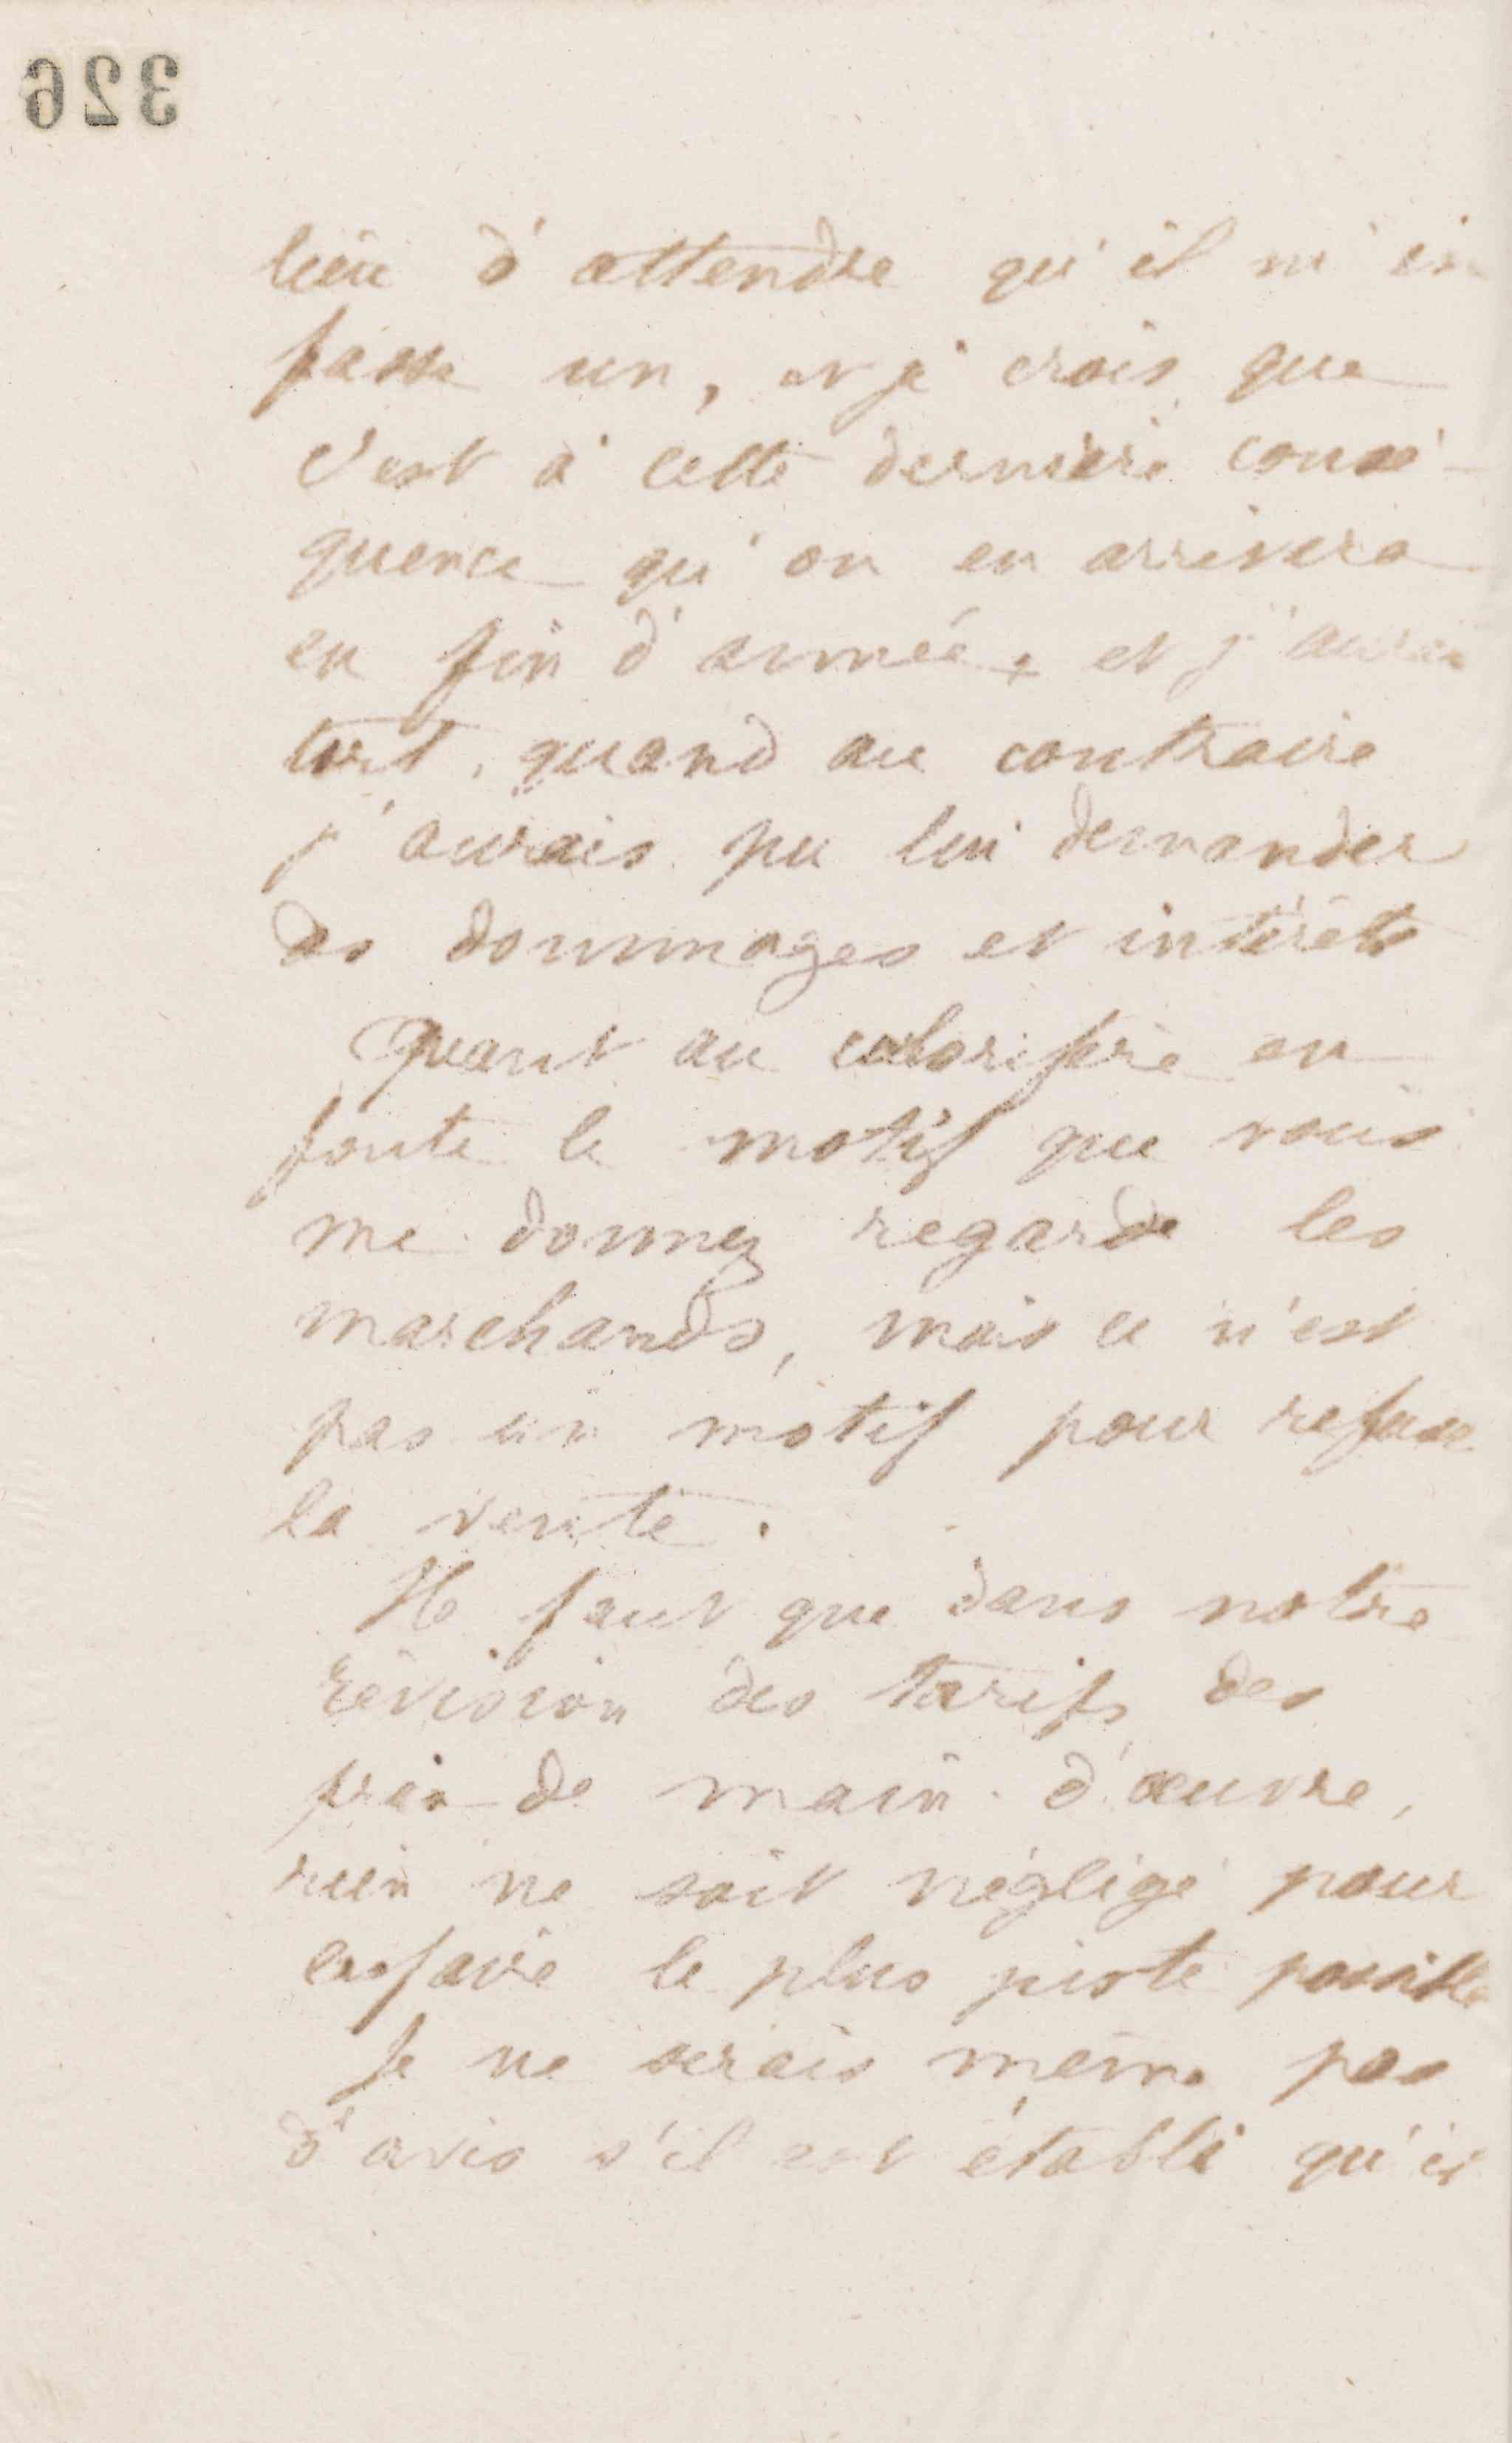 326
lieu d'attendre qu'il m'en
fasse un, et je crois que
c'est à cette dernière consé-
quence qu'on en arrivera
en fin d'année, et j'aurai
tort, quand au contraire
j'aurais pu lui demander
des dommages et intérêts
Quant au calorifère en
fonte le motif que vous
me donnez regarde les
marchands, mais ce n'est
pas un motif pour refuser
la vente.
Il faut que dans notre
révision des tarifs des
prix de main-d'œuvre,
rien ne soit négligé pour
les faire le plus juste possible
Je ne serais même pas
d'avis s'il est établi qu'il